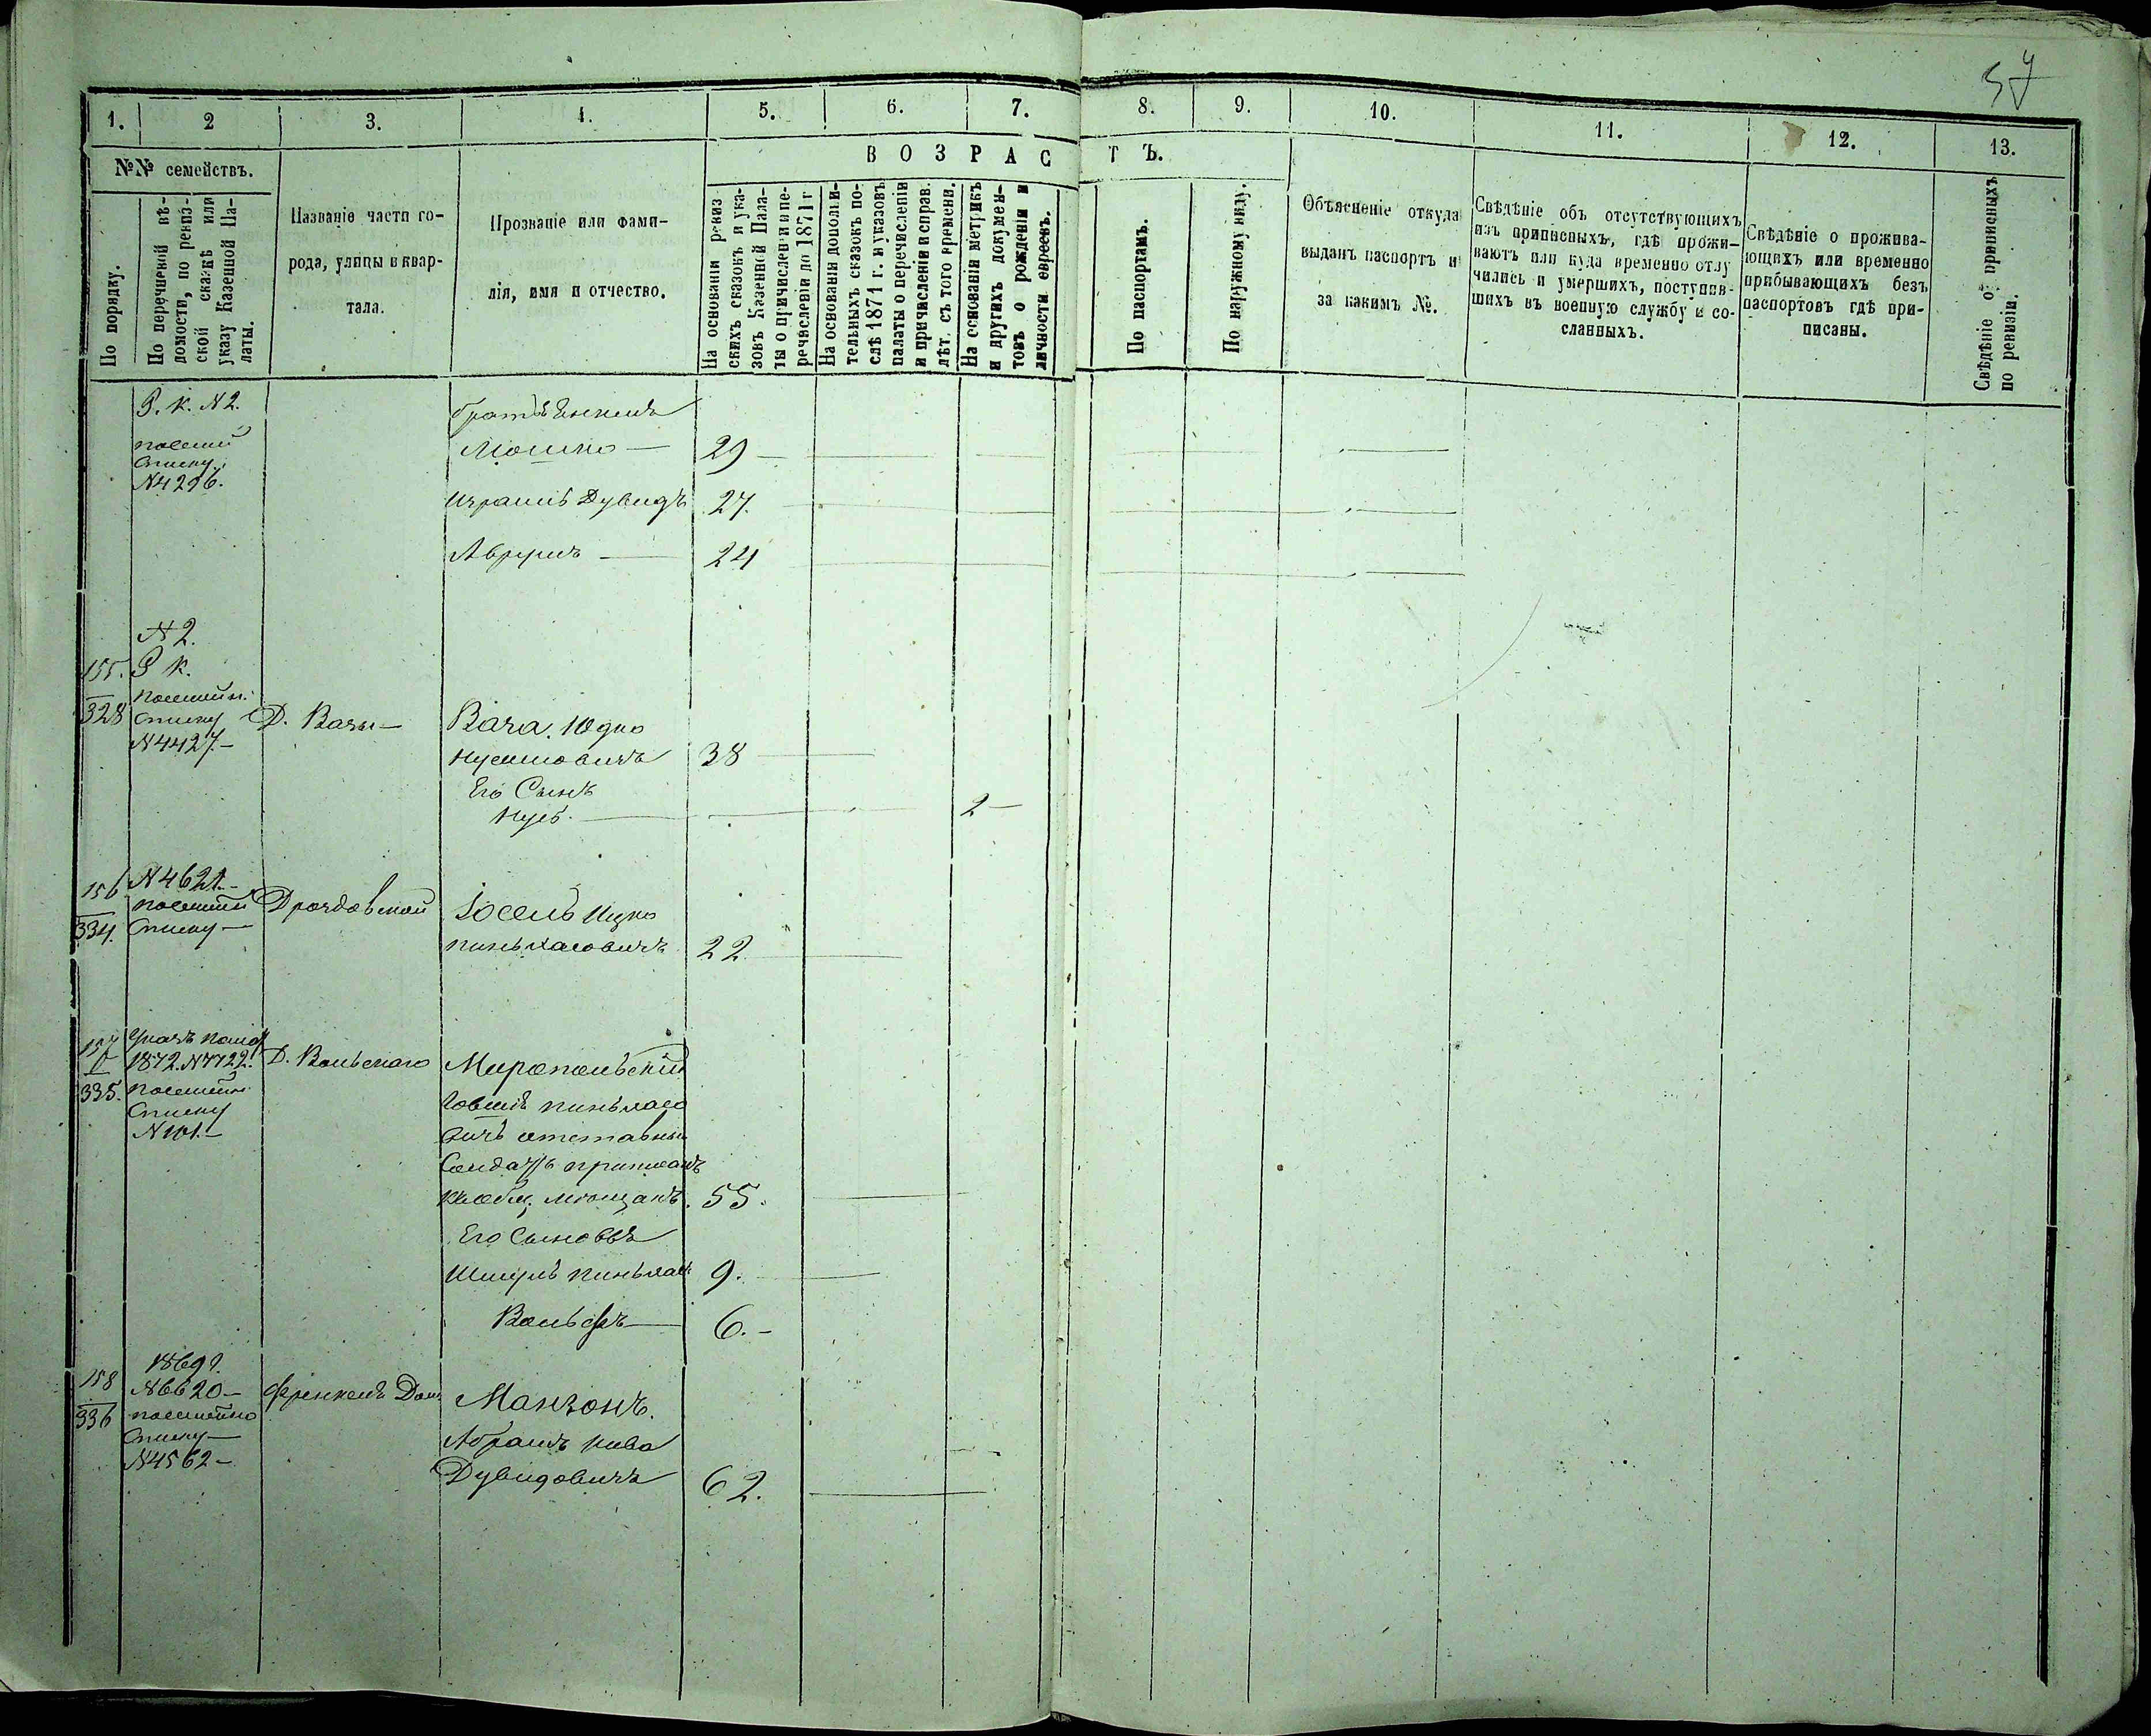 57
1. 2 3. 4. 5. 6. 7. 8. 9. 10. 11. 12. 13.
№№ семействъ.
По порядку.
По перечневой вѣ-
домости, по ревиз-
ской сказкѣ или
указу Казенной Па-
латы.
Названіе части го-
рода, улицы и квар-
тала.
Прозваніе или фами-
лія, имя и отчество.
ВОЗРАСТЪ.
На основаніи ревиз-
скихъ сказокъ и ука-
зовъ Казенной Пала-
ты о причисленіи и пе-
речисленіи до 1871 г
На основаніи дополни-
тельныхъ сказокъ по-
слѣ 1871 г. и указовъ
палаты о перечисленіи
и причисленіи и справ.
лѣт. съ того времени.
На основаніи метрикъ
и другихъ докумен-
товъ о рожденіи и
личности евреевъ.
По паспортамъ.
По наружному виду.
Объясненіе откуда
выданъ паспортъ и
за какимъ №.
Свѣдѣніе объ отсутствующихъ
изъ приписныхъ, гдѣ прожи-
ваютъ или куда временно отлу
чились и умершихъ, поступив-
шихъ въ военную службу и со-
сланныхъ.
Свѣдѣніе о прожива-
ющихъ или временно
прибывающихъ безъ
паспортовъ гдѣ при-
писаны.
Свѣдѣніе о приписныхъ
по ревизіи.
Р. к. N 2.
списку
N 4296.
Мошко — 29
Дувидъ 27.
Аврумъ — 24
N 2.
155. Р к.
328 списку Д. Вачи —
N 4427. —
Вача. Юдко
Нусимовичъ 38
Его Сынъ
2 —
156 N 4621. —
334. списку —
Іосель Ицко
Пиньхасовичъ 22
157 Указъ
1872. N 7722. Д. Вольскаго
335.
списку
N 101. —
Миропольскій
Пиньхасо
вичъ отставный
Солдатъ
мѣщанъ. 55.
Его Сыновья
Шмуль Пиньхас 9.
Вольфъ — 6. —
158 1869 г.
N 6620 — Френкель Дом
336
списку —
N 4562 —
Манзонъ.
Абрамъ Кива
Дувидовичъ 62.